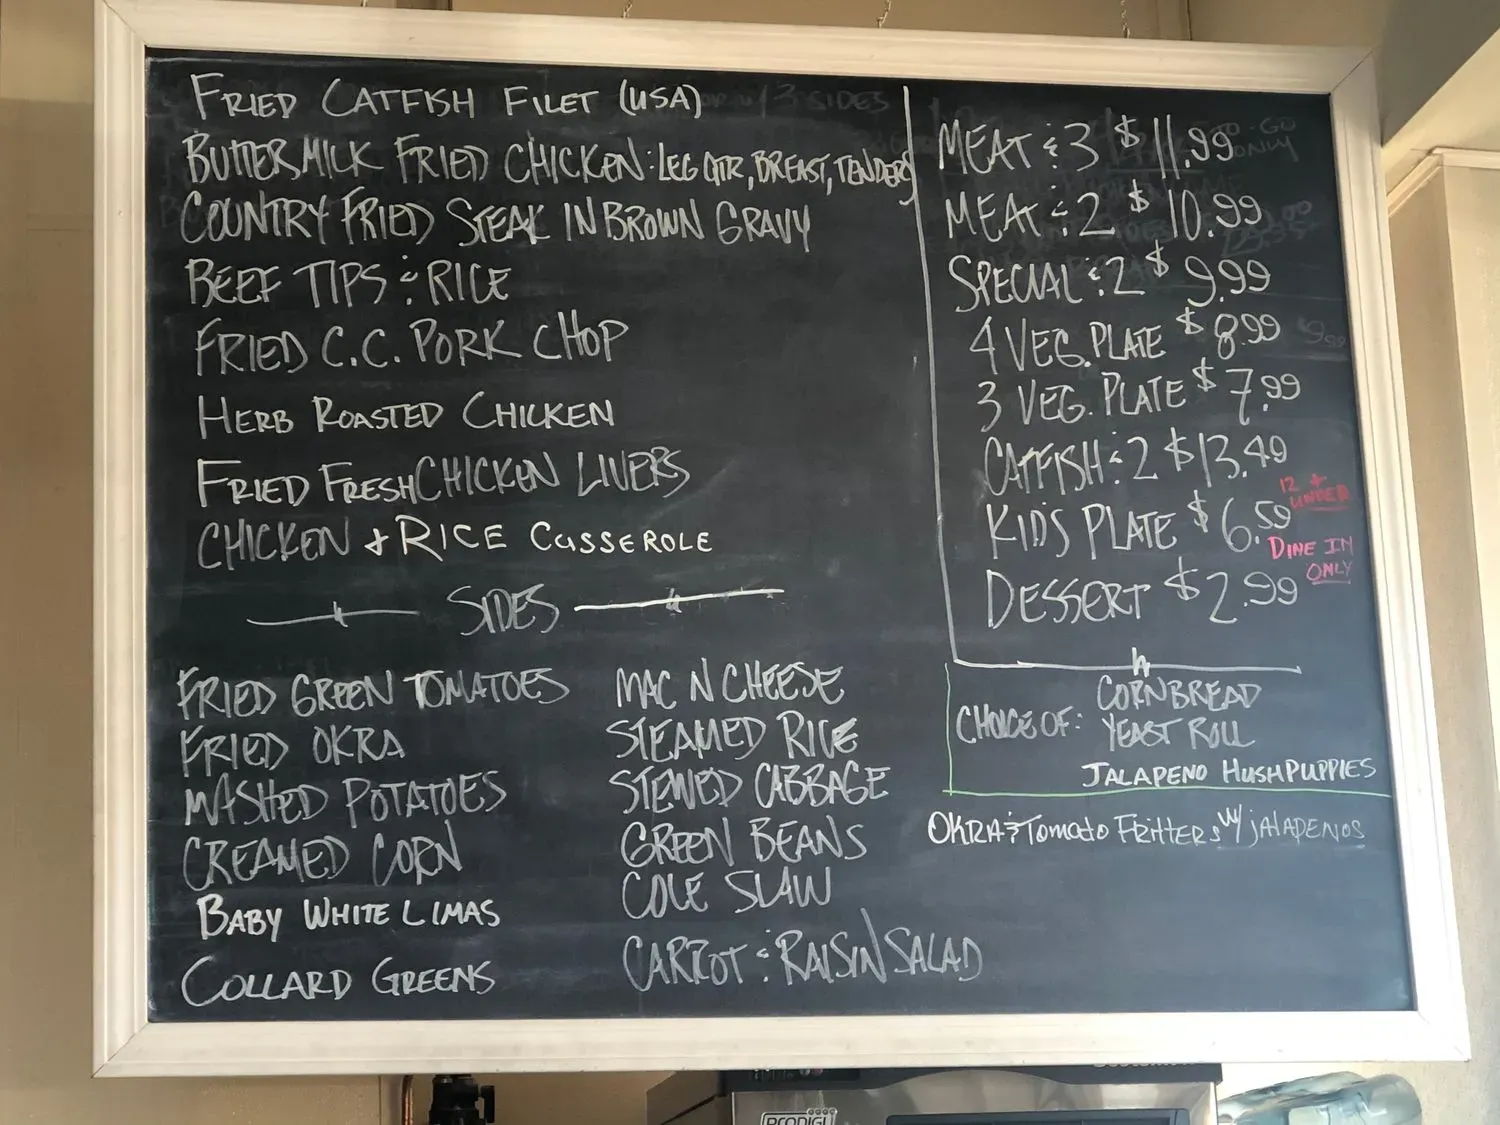 FRIED CATFISH FILET (USA)
BUTTERMILK FRIED CHICKEN: LEG QTR, BREAST, TENDERS
COUNTRY FRIED STEAK IN BROWN GRAVY
BEEF TIPS & RICE
FRIED C.C. PORK CHOP
HERB ROASTED CHICKEN
FRIED FRESH CHICKEN LIVERS
CHICKEN & RICE CASSEROLE
SIDES
FRIED GREEN TOMATOES
FRIED OKRA
MASHED POTATOES
CREAMED CORN
BABY WHITE LIMAS
COLLARD GREENS
MAC N CHEESE
STEAMED RICE
STEWED CABBAGE
GREEN BEANS
COLE SLAW
CARROT & RAISIN SALAD
MEAT & 3 $11.99
MEAT & 2 $10.99
SPECIAL & 2 $9.99
4 VEG. PLATE $8.99
3 VEG. PLATE $7.99
CATFISH & 2 $13.49
KID'S PLATE $6.59
12 +
UNDER
DINE IN
ONLY
DESSERT $2.99
CHOICE OF: CORNBREAD
YEAST ROLL
JALAPENO HUSHPUPPIES
OKRA & TOMATO FRITTERS W/ JALAPENOS
PRODIGY